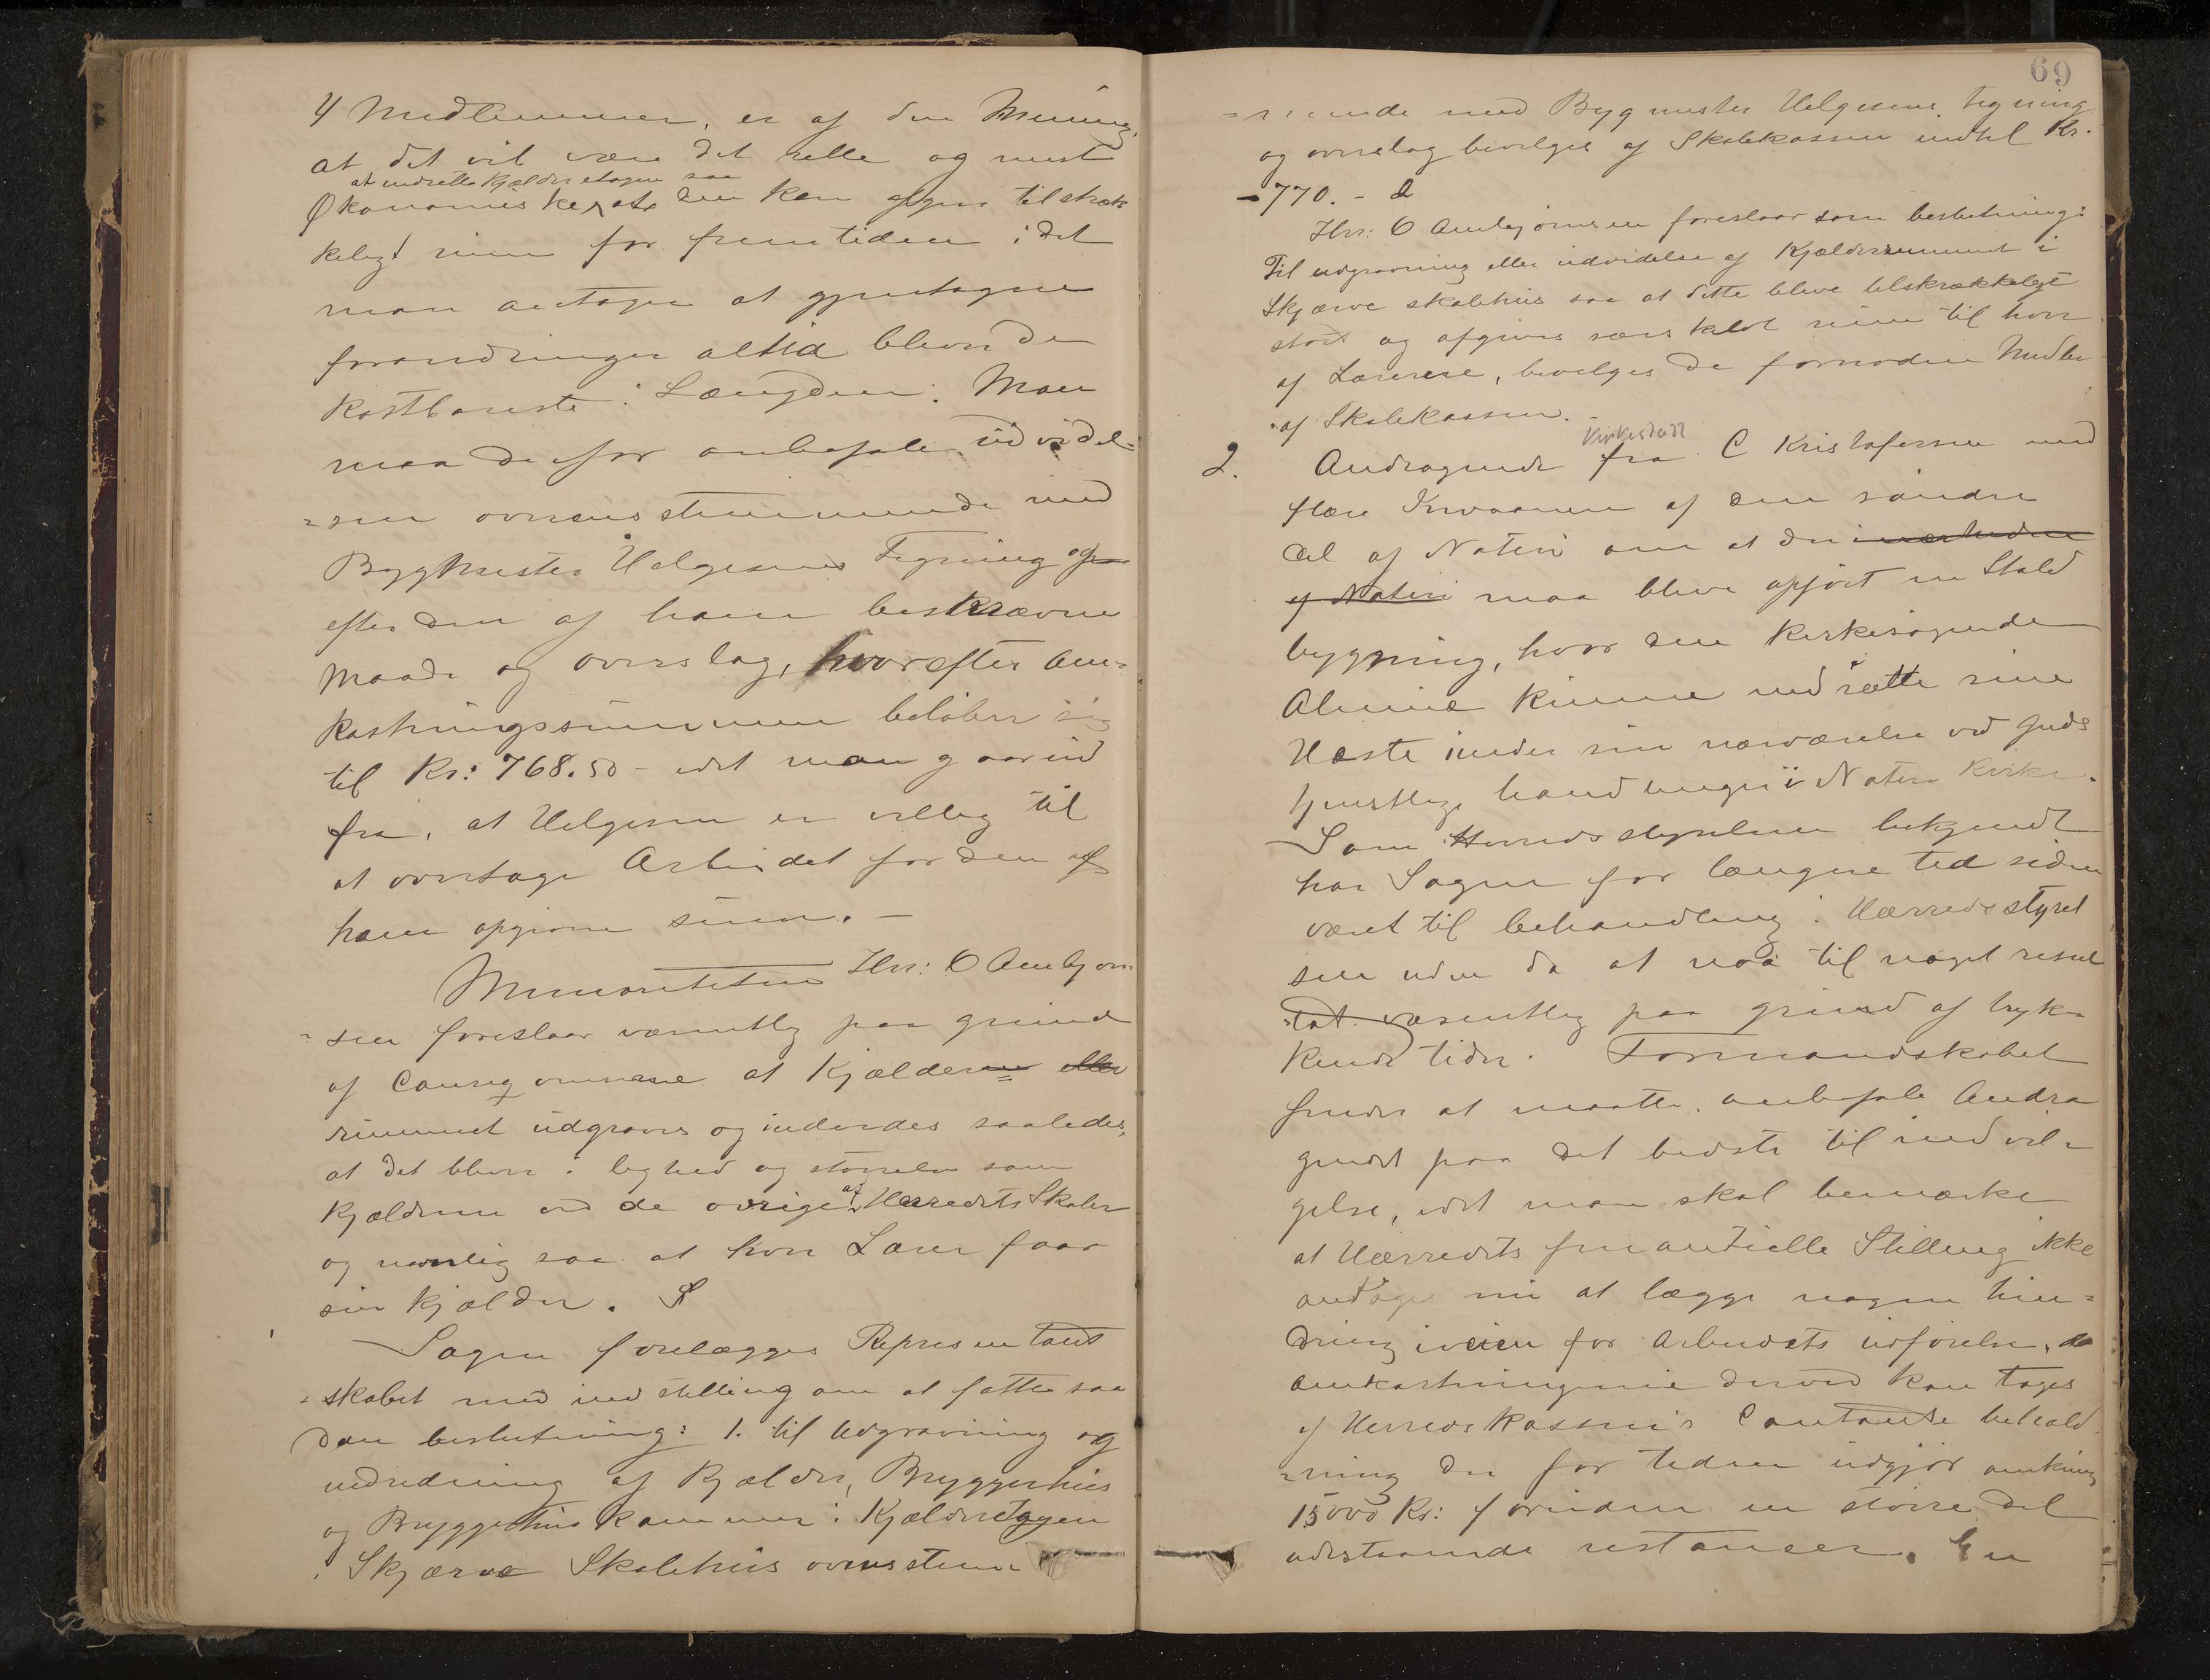 4 Medlemmer, er af den Mening,
at det vil være det rette og mest
at indrette Kjælderetagen saa
Økonomiske, at den kan afgive tilstræk
keligt rum for fremtiden i det
man antager at gjentagne
forandringer altid bliver de
Kostbareste i Længden. Man
maa derfor anbefale udvidel-
=sen overensstemmende med
Bygmester Helgesens Tegning og
efter den af ham beskrævne
Maade og overslag, hvorefter Om=
kostningssummen beløber sig
til Kr: 768.50 - idet man gaar ud
fra, at Helgesen er villig til
at overtage Arbeidet for den af
ham opgivne sum. -
Minoriteten Hrr: O Ambjørn
=sen foreslaar væsentlig paa grund
af at Kjælderen eller
rummet udgraves og indredes saaledes,
at det bliver i lighed og størrelse som
Kjælderne ved de øvrige af Herredets Skoler
og navnlig saa at hver Lærer faar
sin Kjælder.
Sagen forelægges Representant
=skabet med indstilling om at fatte saa
dan beslutning: 1. til Udgravning og
indredning af Kjælder, Bryggerhus
og Bryggerhuskammer i Kjælderetagen
i Skjærve Skolehus overensstem=
69
=mende med Bygmester Helgesens tegning
og overslag bevilges af Skolekassen indtil Kr.
-770. -
Hrr: O Ambjørnsen foreslaar som beslutning:
Til udgravning eller udvidelse af Kjælderrummet i
Skjærve skolehus saa at dette bliver tilstrækkeligt
stort og afgiver særskildt rum til hver
af Lærerene, bevilges de fornødne Midler
af Skolekassen.
Kirkestald
2. Andragende fra C Kristofersen med
flere Invaanere af den søndre
Del af Notero om at der i nærheden
af Notero maa blive opført en Stald
bygning, hvor den Kirkesøgende
Almue kunne indsætte sine
Hæste under sin nærværelse ved Guds
tjenstlige handlinger i Notero Kirke.
Som Herredsstyrelsen bekjendt
har Sagen for længere tid siden
været til behandling i Herredsstyrel
sen uden da at naa til noget resul
tat væsentlig paa grund af tryk=
kende tider. Formandskabet
finder at maatte anbefale Andra
gendet paa det bedste til indvil=
gelse, idet man skal bemærke
at Herredets finantielle Stilling ikke
antages nu at lægge nogen hin=
dring iveien for Arbeidets udførelse, da
omkostningerne derved kan tages
af Herredskassens Contante behold
=ning der for tiden udgjør omkring
15000 Kr: foruden en større del
udestaaende restancer. En